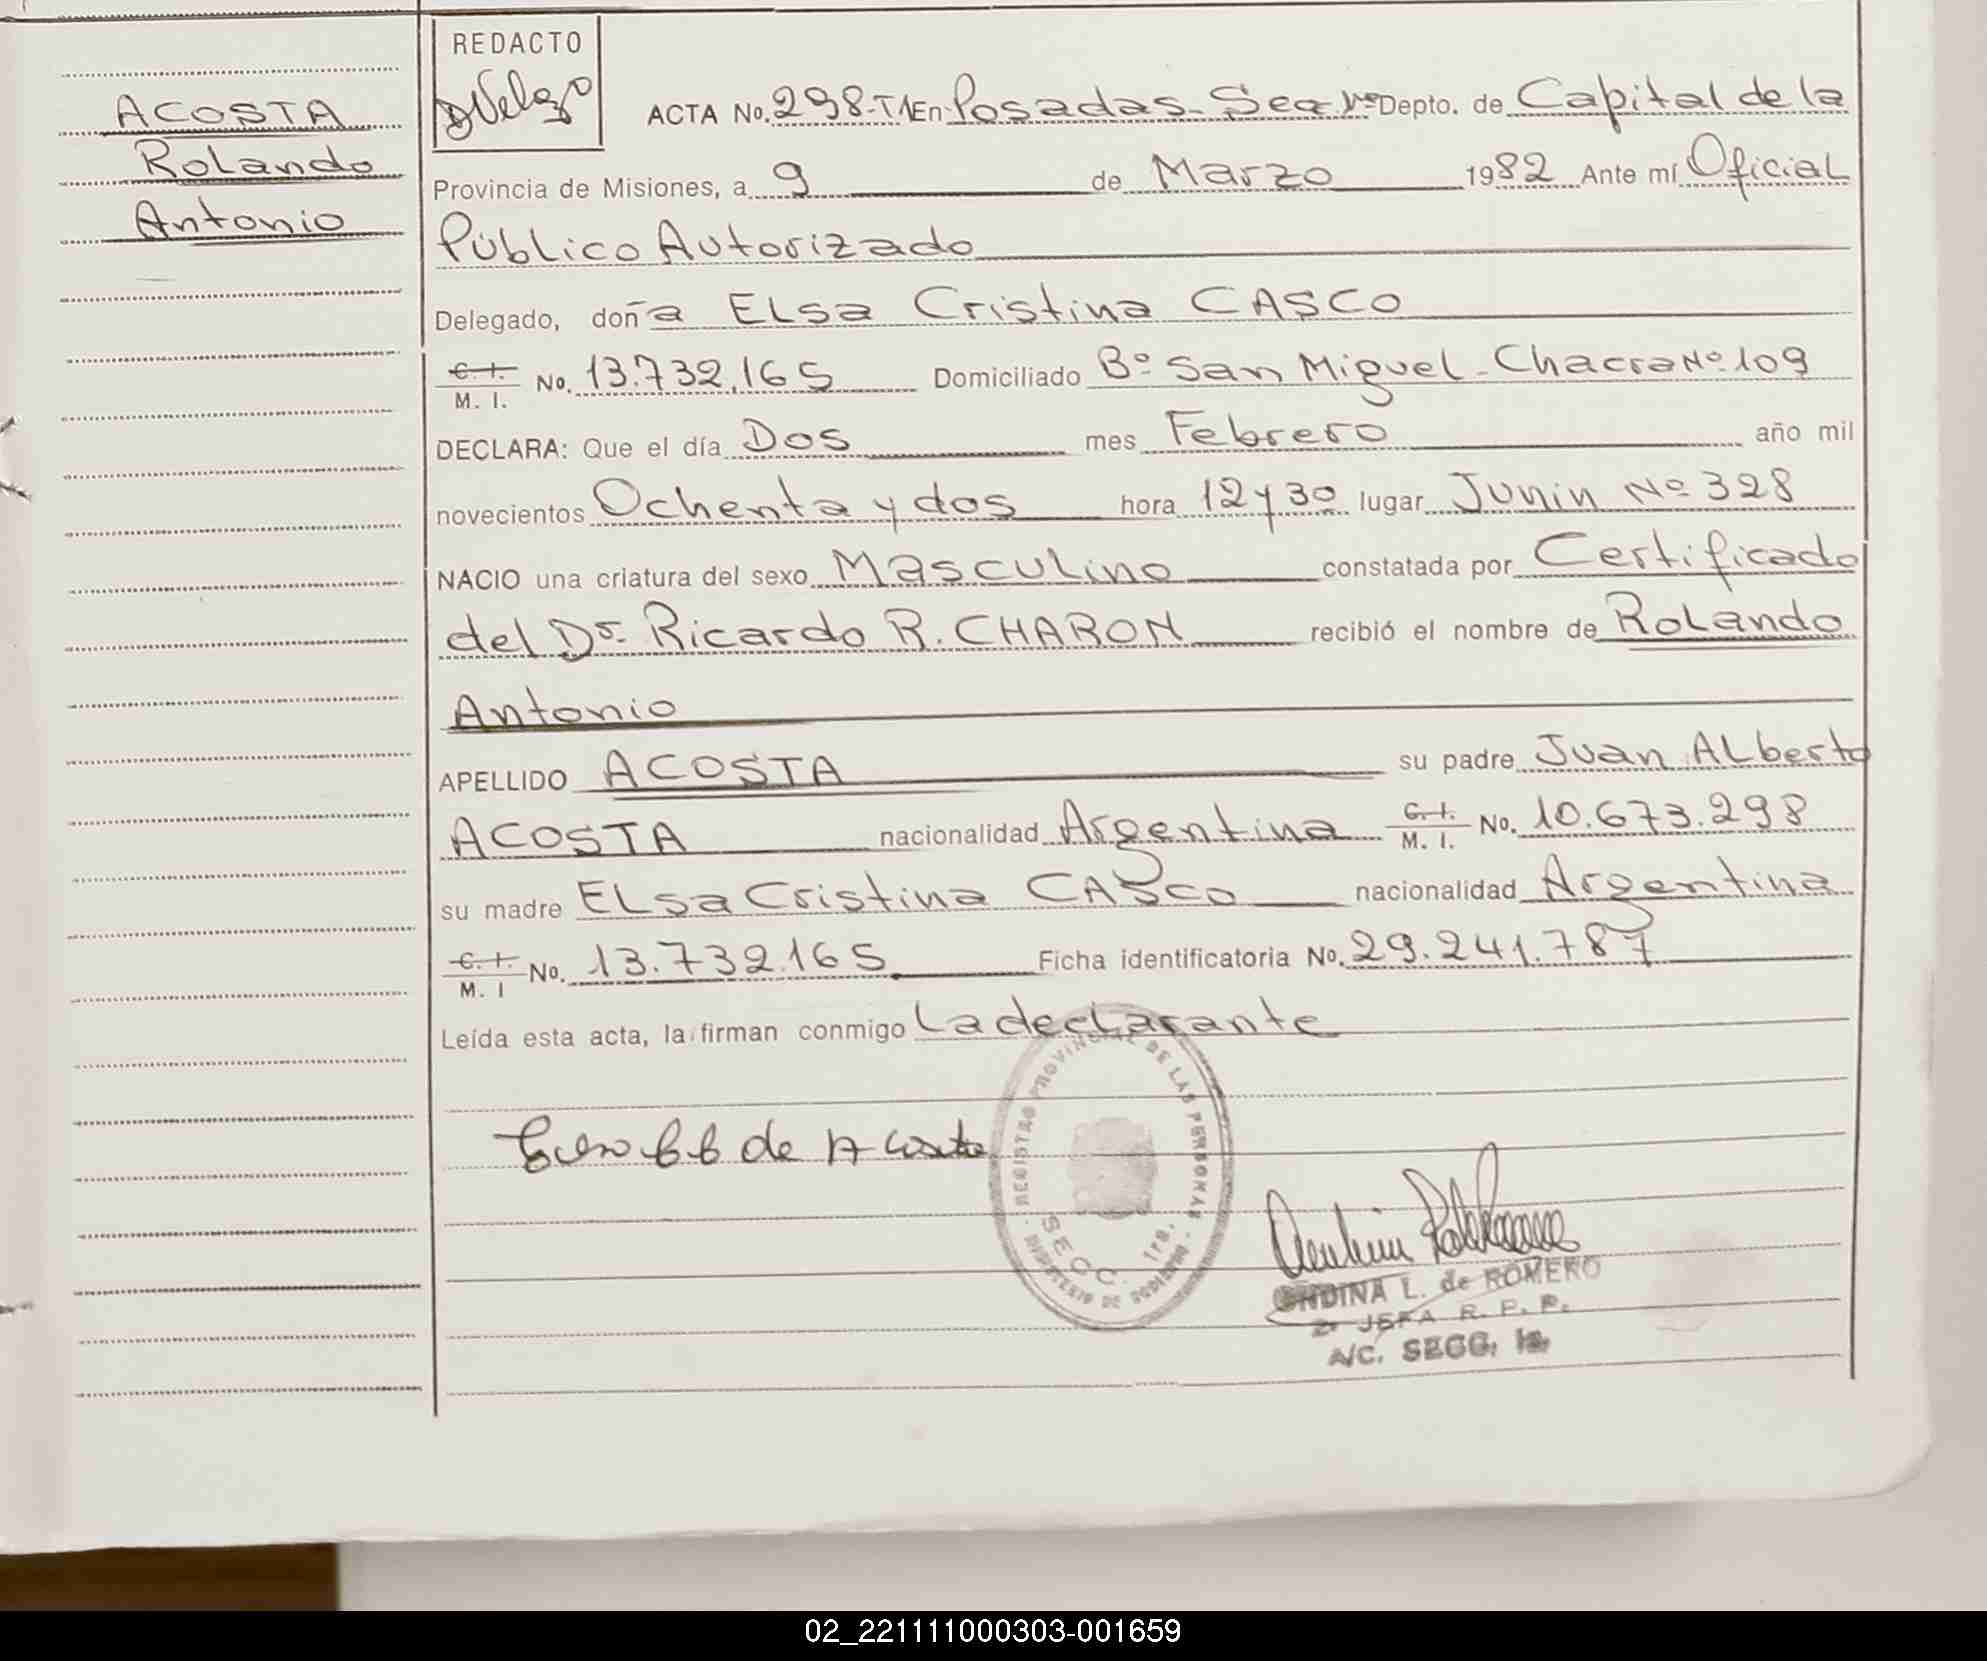 ACOSTA
Rolando
Antonio
REDACTO
ACTA No. 298-T1 En Posadas - Secc. 1ra Depto. de Capital de la
Provincia de Misiones, a 9 de Marzo 1982 Ante mí Oficial
Público Autorizado
Delegado, doña Elsa Cristina CASCO
C. I. / M. I. No. 13.732.165 Domiciliado Bº San Miguel - Chacra Nº 109
DECLARA: Que el día Dos mes Febrero año mil
novecientos Ochenta y dos hora 12 y 30 lugar Junin Nº 328
NACIO una criatura del sexo Masculino constatada por Certificado
del Dr. Ricardo R. CHARON recibió el nombre de Rolando
Antonio
APELLIDO ACOSTA su padre Juan Alberto
ACOSTA nacionalidad Argentina C. I. / M. I. No. 10.673.298
su madre Elsa Cristina CASCO nacionalidad Argentina
C. I. / M. I No. 13.732.165 Ficha identificatoria No. 29.241.787
Leída esta acta, la firman conmigo La declarante
REGISTRO PROVINCIAL DE LAS PERSONAS
SECC. 1ra.
MINISTERIO DE GOBIERNO
de Acosta
ONDINA L. de ROMERO
JEFA R. P. P.
A/C. SECC. 1a.
02_221111000303-001659